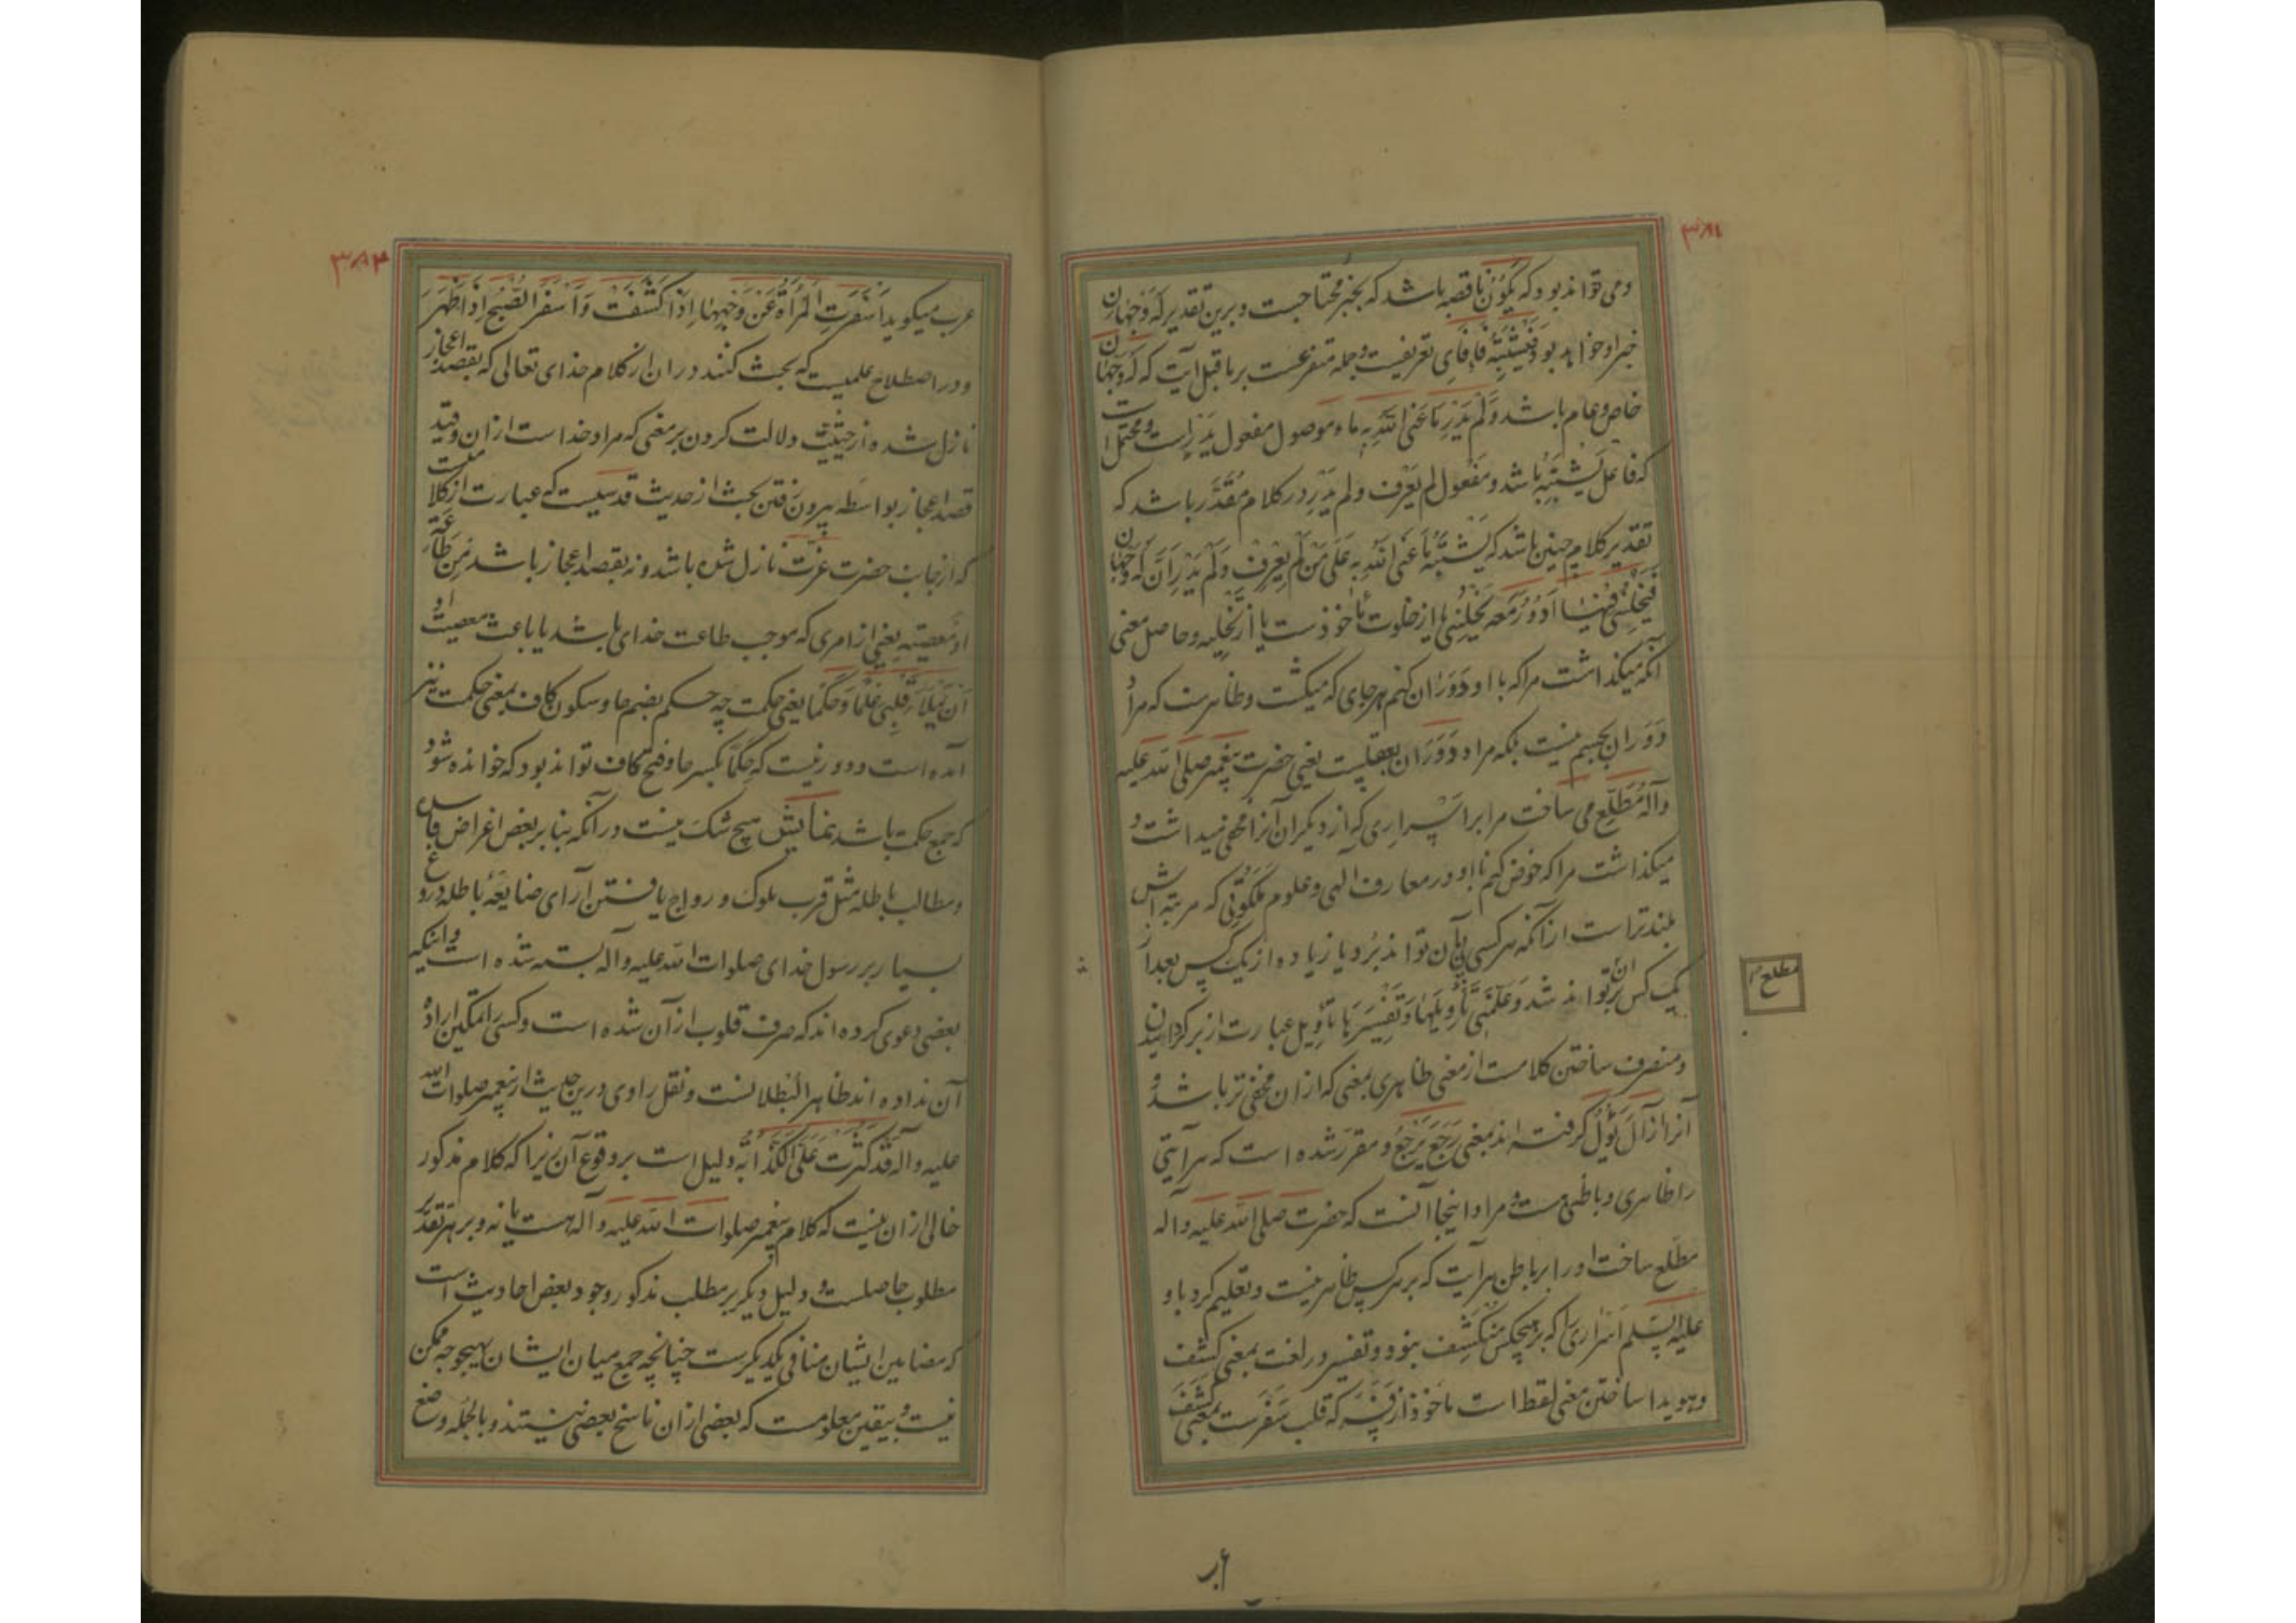 ۳۸۱
ومی تواند بود که یَکُون ناقصه باشد که بخبر محتاجست و برین تقدیر لَهُ وَجْهَانِ
خبر او خواهد بود فَیَشْتَبِهُ فا فای تعریفیست و جمله متفرعست بر ماقبل آیت که لَهُ وَجْهَانِ
خاص و عام باشد وَلَمْ یَدْرِ مَا عَنَی اللهُ بِهِ ما موصول مفعول یَدْرِ است و محتمل است
که فاعل یَشْتَبِهُ باشد و مفعول لم یَعْرِف و لم یَدْرِ در کلام مُقَدَّر باشد که
تقدیر کلام چنین باشد که یَشْتَبِهُ مَا عَنَی اللهُ بِهِ عَلَی مَنْ لَمْ یَعْرِفْ وَلَمْ یَدْرِ أَنَّ لَهُ وَجْهَانِ
فَیُخْلِیْنِی فِیْهَا أَدُوْرُ مَعَهُ یُخْلِیْنِی یا از خلوت مأخوذست یا از تَخْلِیه و حاصل معنی
آنکه میگذاشت مرا که با او دَوَران کنم هر جای که میگشت و ظاهرست که مراد
دَوَران بجسم نیست بلکه مراد دَوَران بعقلیست یعنی حضرت پیغمبر صلی الله علیه
وآله مُطَّلِع می ساخت مرا بر اسراری که از دیگران آنرا مخفی میداشت و
میگذاشت مرا که خوض کنم با او در معارف الهی و علوم مَلَکُوتی که مرتبه اش
بلند تر است از آنکه هر کسی پی بآن تواند برد یا زیاده از یک کس بعد از
یک کس بر آن تواند شد وَعَلَّمَنِی تَأْوِیْلَهَا وَتَفْسِیْرَهَا تأویل عبارت از برگردانیدن
مطلع
و منصرف ساختن کلامست از معنی ظاهری بمعنی که ازان مخفی تر باشد و
آنرا از آلَ یَؤُلُ گرفته اند بمعنی رَجَعَ یَرْجِعُ و مقرر شده است که هر آیتی
را ظاهری و باطنی هست و مراد اینجا آنست که حضرت صلی الله علیه وآله
مطلع ساخت او را بر باطن هر آیت که بر هر کس ظاهر نیست و تعلیم کرد باو
علیه السلم اسراری را که بر هیچکس مُنکَشِف نبود و تفسیر در لغت بمعنی کشف
و هویدا ساختن معنی لفظ است مأخوذ از فَسَرَ که قلب سَفَرَست بمعنی کَشَفَ
۳۸۲
عرب میگوید أَسْفَرَتِ الْمَرْأَةُ عَنْ وَجْهِهَا إِذَا کَشَفَتْ وَأَسْفَرَ الصُّبْحُ إِذَا ظَهَرَ
و در اصطلاح علمیست که بحث کنند در ان از کلام خدای تعالی که بقصد اعجاز
نازل شده از حیثیت دلالت کردن بر معنی که مراد خداست ازان و قید
قصد اعجاز بواسطه بیرون رفتن بحث از حدیث قدسیست که عبارت از کلامیست
که از جانب حضرت عزت نازل شده باشد و نه بقصد اعجاز باشد مِنْ طَاعَةٍ
أَوْ مَعْصِیَتِهِ یعنی از امری که موجب طاعت خدای باشد یا باعث معصیت او
أَنْ یَمْلَأَ قَلْبِی عِلْمًا وَحُکْمًا یعنی حکمت چه حکم بضم حا و سکون کاف بمعنی حکمت نیز
آمده است و دور نیست که حِکَمًا بکسر حا و فتح کاف تواند بود که خوانده شود
که جمع حکمت باشد نمایش هیچ شک نیست در آنکه بنا بر بعض اغراض فاسده
و مطالب باطله مثل قرب ملوک و رواج یافتن آرای ضایعه باطله دروغ
بسیار بر رسول خدای صلوات الله علیه وآله بسته شده است و اینکه
بعضی دعوی کرده اند که صرف قلوب از آن شده است و کسی را تمکین اراده
آن نداده اند ظاهر البُطلانست و نقل راوی درین حدیث از پیغمبر صلوات الله
علیه وآله قَدْ کَثُرَتْ عَلَیَّ الْکَذَّابَةُ دلیل است بر وقوع آن زیرا که کلام مذکور
خالی ازان نیست که کلام پیغمبر صلوات الله علیه وآله هست یا نه و بر هر تقدیر
مطلوب حاصلست و دلیل دیگر بر مطلب مذکور وجود بعض احادیث است
که مضامین ایشان منافی یکدیگرست چنانچه جمع میان ایشان بهیچوجه ممکن
نیست و بیقین معلومست که بعضی ازان ناسخ بعضی نیستند و بالجمله وضع